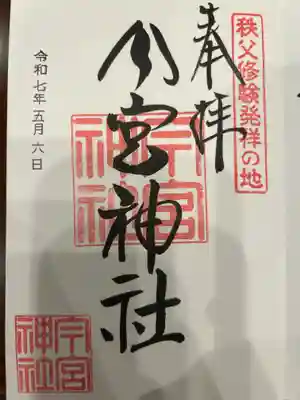 秩父修験発祥の地
奉拝
今宮神社
今宮
神社
令和七年五月六日
今宮
神社